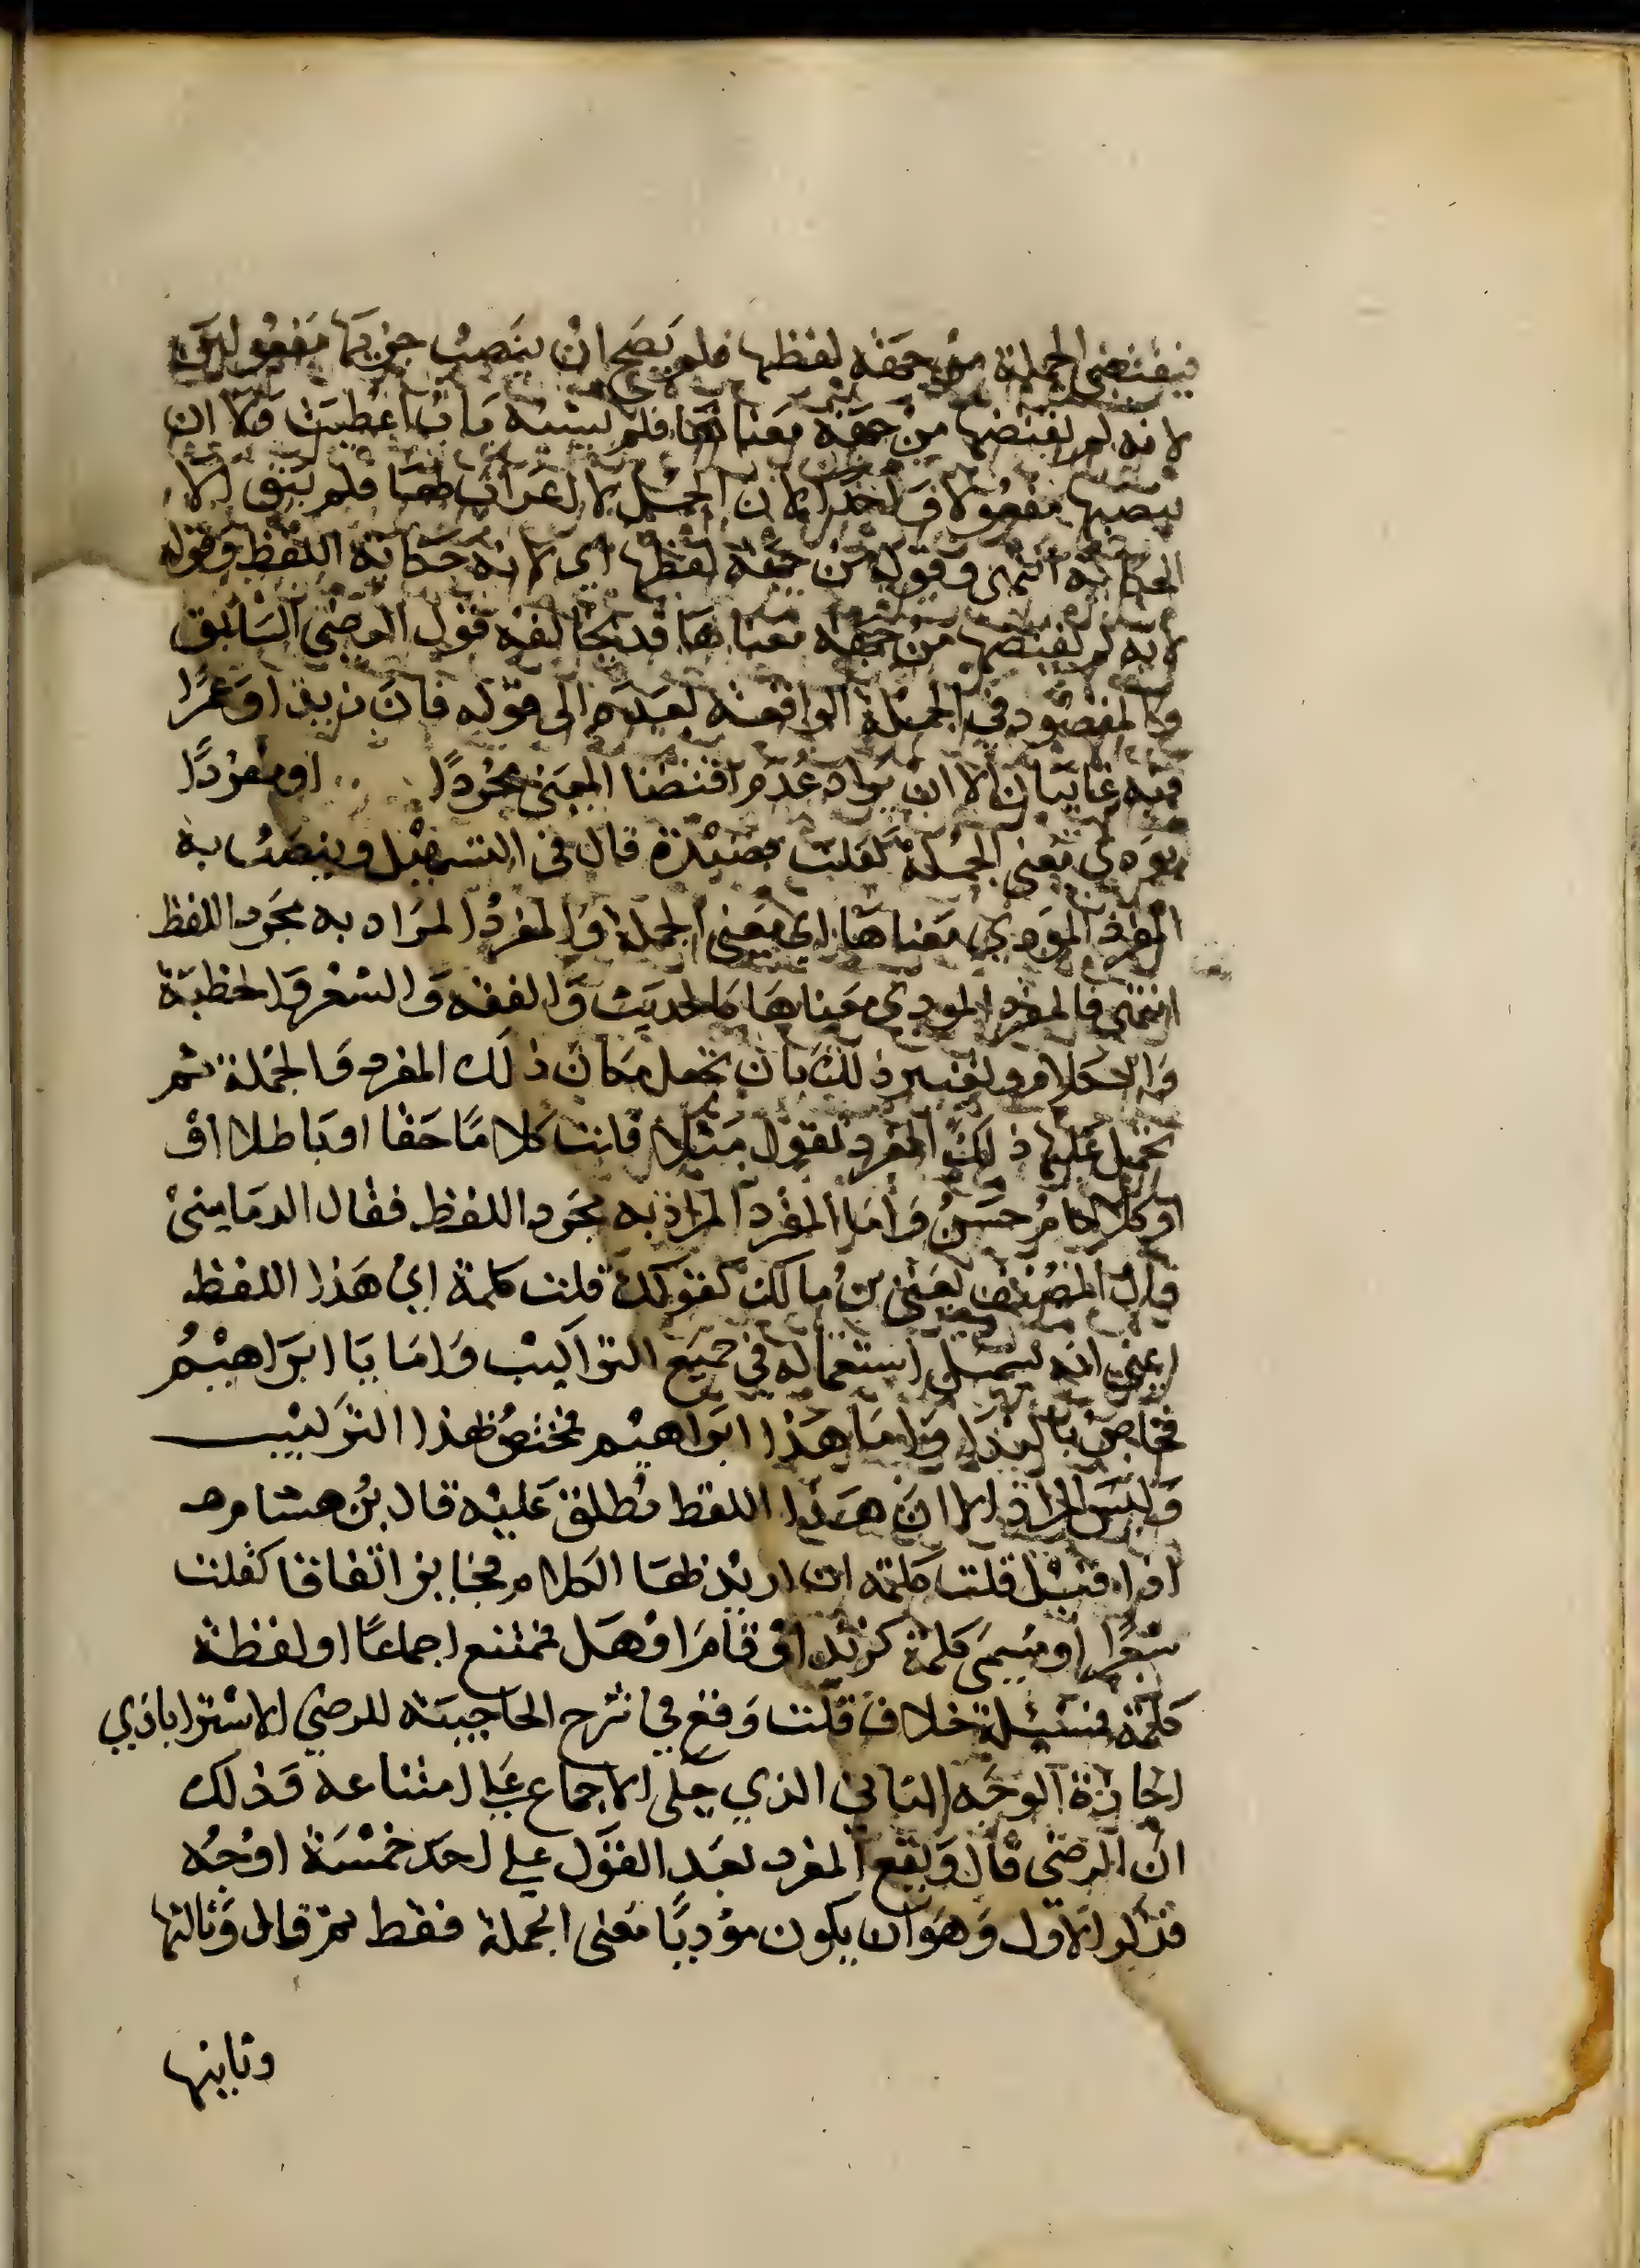 فيقتضي الجملة من جهة لفظها فلم يصح ان ينصب جزيها مفعولين
لانه لم يقتضها من جهة معناها فلم يشبه باب اعطيت ولا ان
ينصبها مفعولا واحدا لان الجمل لا اعراب لها فلم يبق الا
الحكاية انتهى وقوله من جهة لفظها اي لانه حكاية اللفظ وقوله
لانه لم يقتضها من جهة معناها قد يخالفه قول الرضى السابق
والمقصود في الجملة الواقعة بعده الى قوله فان زيدا وعمرًا
فيه غايبان الا ان يراد عدم اقتضا المعنى مجردًا او مفردًا
يودي معنى الجملة كقلت قصيدة قال في التسهيل وينصب به
المفرد المودي معناها اي معنى الجملة والمفرد المراد به مجرد اللفظ
انتهى فالمفرد المودي معناها كالحديث والفقه والشعر والخطبة
والكلام ويعتبر ذلك بان تجعل مكان ذلك المفرد والجملة ثم
تحمل عليها ذلك المفرد تقول مثلا قلت كلاما حقا او باطلا او
او كلام حسن واما المفرد المراد به مجرد اللفظ فقال الدماميني
قال المصنف يعني بن مالك كقولك قلت كلمة اي هذا اللفظ
يعني انه يستعمل استعماله في جميع التراكيب واما يا ابراهيم
فخاص بالندا واما هذا ابراهيم فمختص بهذا التركيب
وليس المراد الا ان هذا اللفظ يطلق عليه قال بن هشام
اذا قيل قلت كلمة ان اريد بها الكلام فجايز اتفاقا كقلت
شعرا او مسمى كلمة كزيد او قام او هل فممتنع اجماعًا او لفظة
كلمة فمسيلة خلاف قلت وقع في شرح الحاجبية للرضي الاستراباذي
اجازة الوجه الثاني الذي حكى الاجماع على امتناعه وذلك
ان الرضى قال ويقع المفرد بعد القول على احد خمسة اوجه
فذكر الاول وهو ان يكون موديًا معنى الجملة فقط ثم قال وثالثها
وثانيها